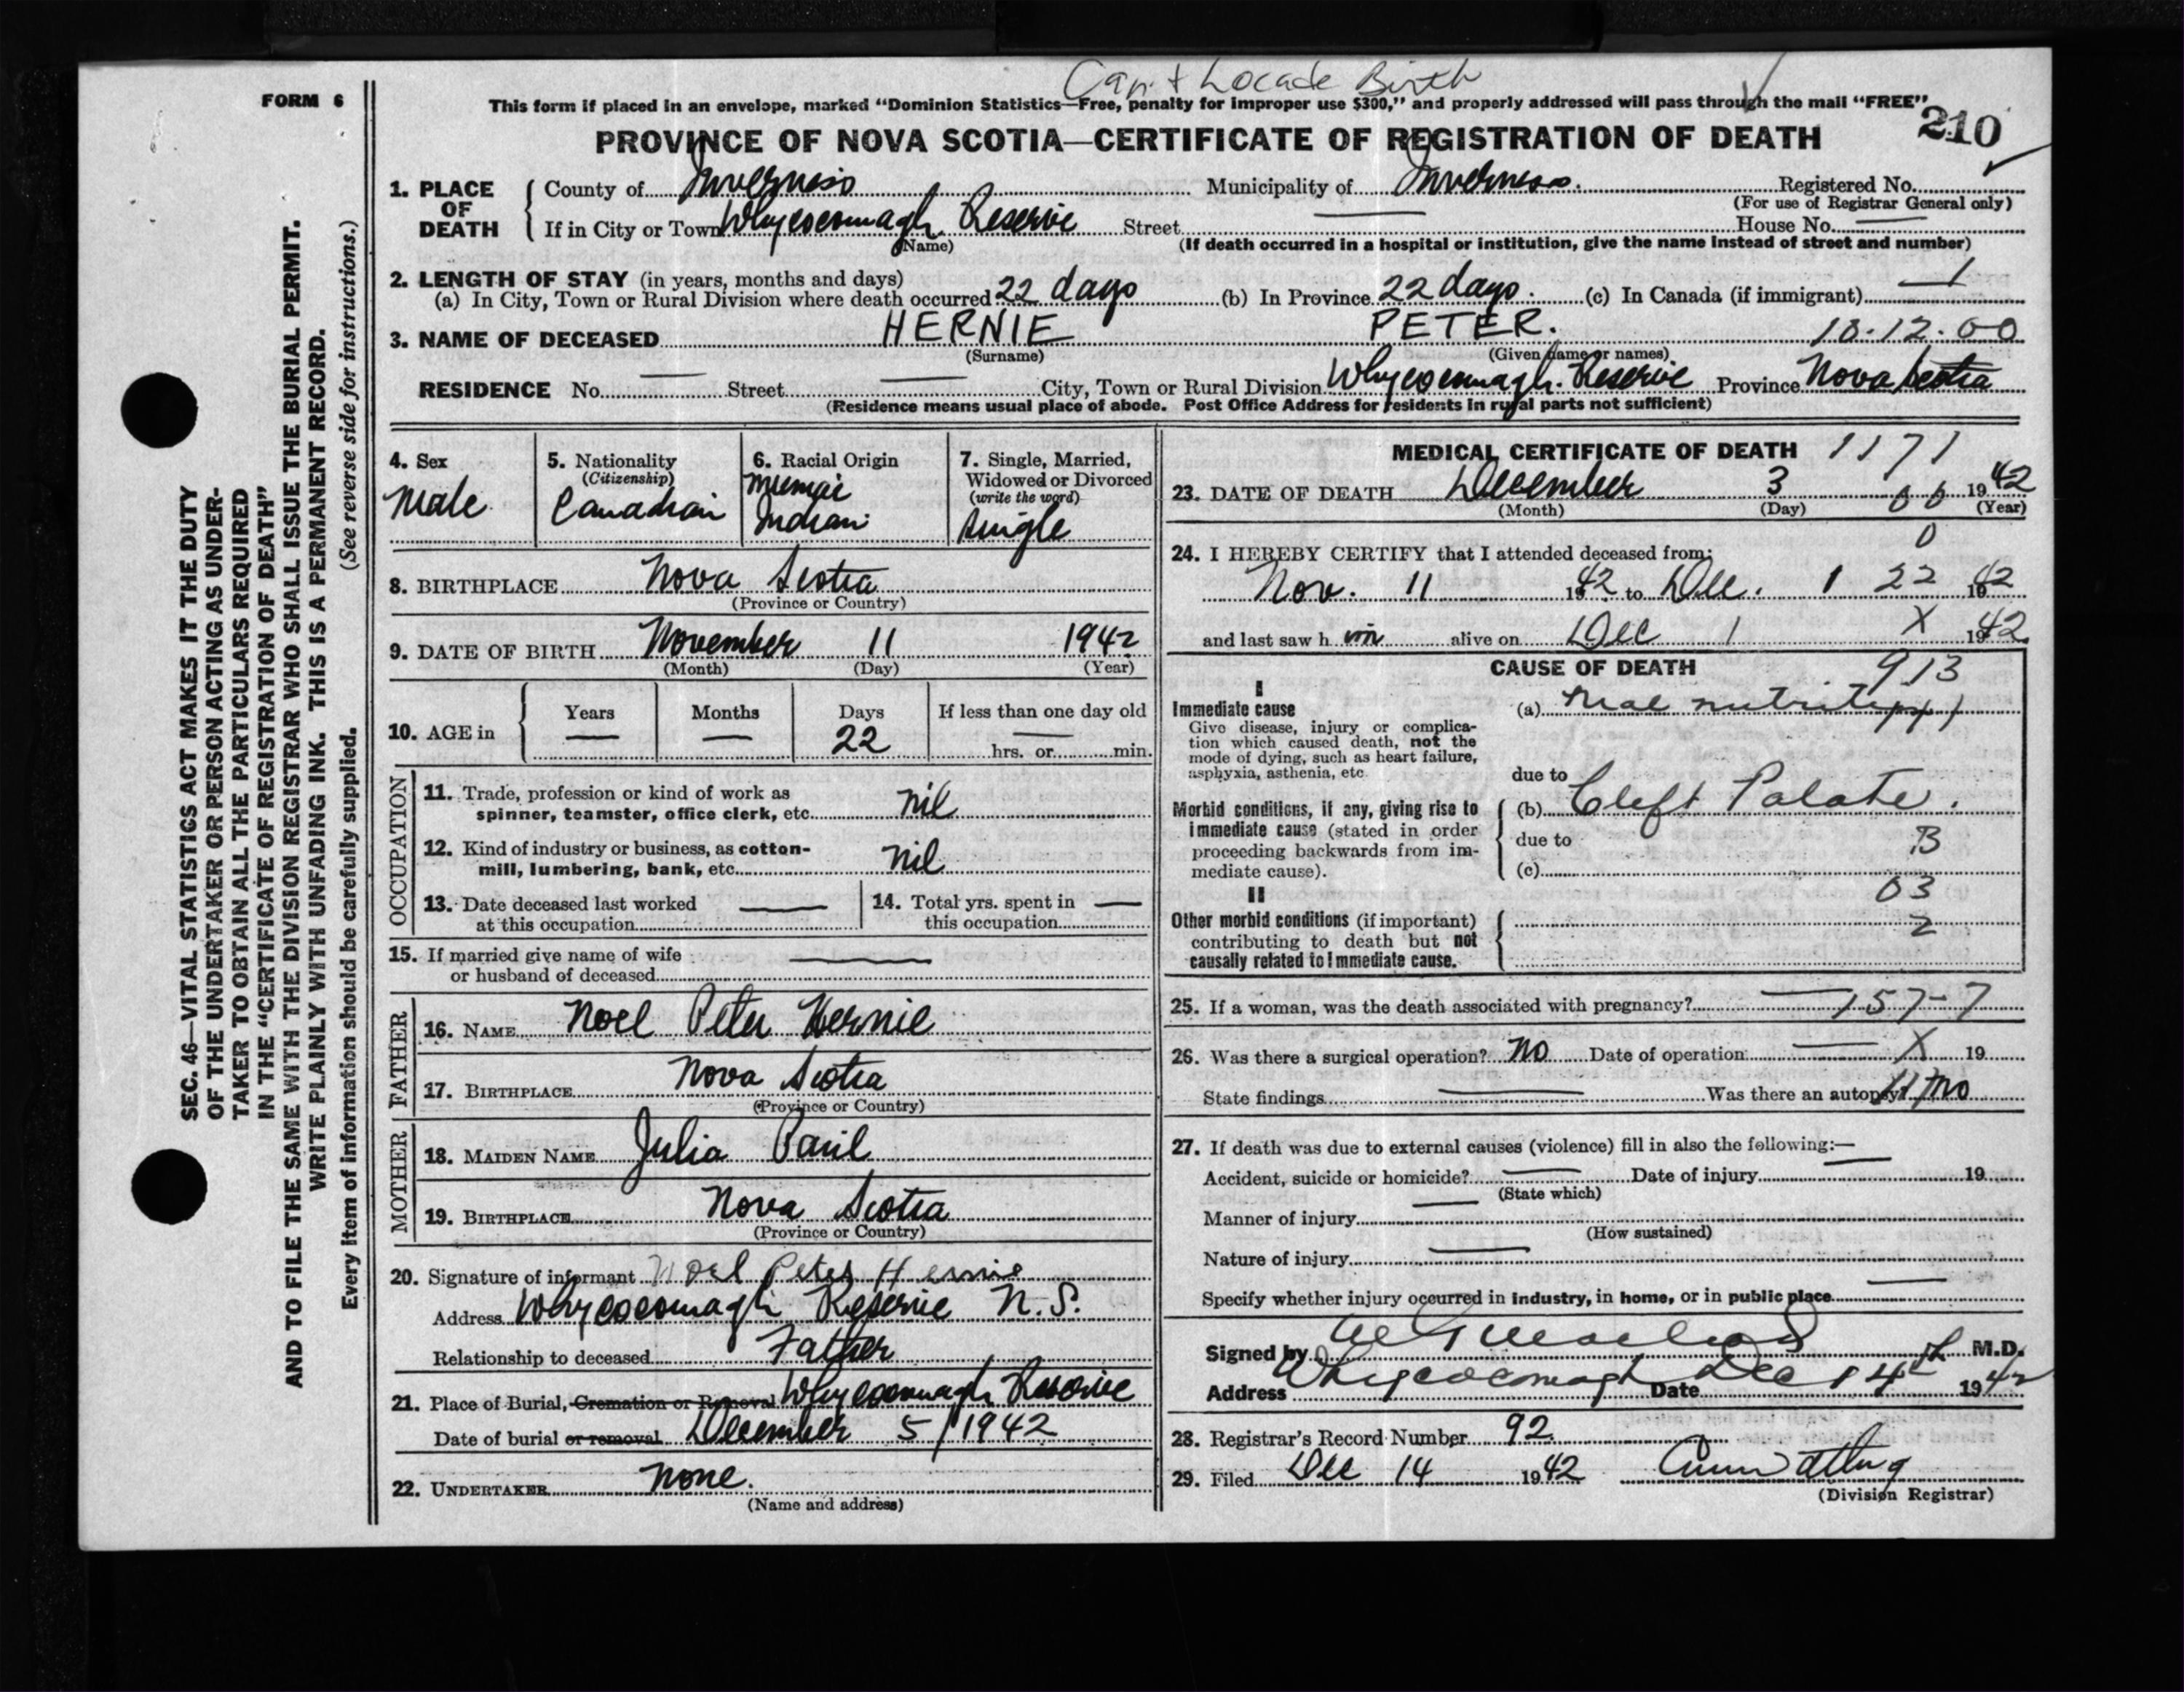 Can't Locate Birth
FORM 6
This form if placed in an envelope, marked “Dominion Statistics—Free, penalty for improper use $300,” and properly addressed will pass through the mail “FREE”
210
PROVINCE OF NOVA SCOTIA—CERTIFICATE OF REGISTRATION OF DEATH
SEC. 46—VITAL STATISTICS ACT MAKES IT THE DUTY
OF THE UNDERTAKER OR PERSON ACTING AS UNDER-
TAKER TO OBTAIN ALL THE PARTICULARS REQUIRED
IN THE “CERTIFICATE OF REGISTRATION OF DEATH”
AND TO FILE THE SAME WITH THE DIVISION REGISTRAR WHO SHALL ISSUE THE BURIAL PERMIT.
WRITE PLAINLY WITH UNFADING INK. THIS IS A PERMANENT RECORD.
Every item of information should be carefully supplied. (See reverse side for instructions.)
1. PLACE OF DEATH
County of Inverness Municipality of Inverness. Registered No.
(For use of Registrar General only)
If in City or Town Whycocomagh Reserve Street House No.
(Name) (If death occurred in a hospital or institution, give the name instead of street and number)
2. LENGTH OF STAY (in years, months and days)
(a) In City, Town or Rural Division where death occurred 22 days (b) In Province 22 days. (c) In Canada (if immigrant)
3. NAME OF DECEASED HERNIE PETER. 18·12·00
(Surname) (Given name or names)
RESIDENCE No. Street City, Town or Rural Division Whycocomagh. Reserve Province Nova Scotia
(Residence means usual place of abode. Post Office Address for residents in rural parts not sufficient)
4. Sex
Male
5. Nationality
(Citizenship)
Canadian
6. Racial Origin
Micmac
Indian
7. Single, Married,
Widowed or Divorced
(write the word)
Single
8. BIRTHPLACE Nova Scotia
(Province or Country)
9. DATE OF BIRTH November 11 1942
(Month) (Day) (Year)
10. AGE in Years Months Days If less than one day old
22 hrs. or min.
OCCUPATION
11. Trade, profession or kind of work as
spinner, teamster, office clerk, etc. nil
12. Kind of industry or business, as cotton-
mill, lumbering, bank, etc. nil
13. Date deceased last worked
at this occupation
14. Total yrs. spent in
this occupation
15. If married give name of wife
or husband of deceased
FATHER
16. NAME Noel Peter Hernie
17. BIRTHPLACE Nova Scotia
(Province or Country)
MOTHER
18. MAIDEN NAME Julia Paul
19. BIRTHPLACE Nova Scotia
(Province or Country)
20. Signature of informant Noel Peter Hernie
Address Whycocomagh Reserve N.S.
Relationship to deceased Father
21. Place of Burial, Cremation or Removal Whycocomagh Reserve
Date of burial or removal December 5/1942
22. UNDERTAKER None.
(Name and address)
MEDICAL CERTIFICATE OF DEATH 1171
23. DATE OF DEATH December 3 00 1942
(Month) (Day) (Year)
24. I HEREBY CERTIFY that I attended deceased from:
0
Nov. 11 1942 to Dec. 1 22 1942
and last saw him alive on Dec 1 X 1942
CAUSE OF DEATH
913
I
Immediate cause
Give disease, injury or complica-
tion which caused death, not the
mode of dying, such as heart failure,
asphyxia, asthenia, etc.
(a) Mal nutrition
due to
Morbid conditions, if any, giving rise to
immediate cause (stated in order
proceeding backwards from im-
mediate cause).
(b) Cleft Palate.
due to B
(c)
03
II
Other morbid conditions (if important)
contributing to death but not
causally related to immediate cause.
2
25. If a woman, was the death associated with pregnancy? 157-7
26. Was there a surgical operation? No Date of operation X 19
State findings Was there an autopsy? No
27. If death was due to external causes (violence) fill in also the following:—
Accident, suicide or homicide? Date of injury 19
(State which)
Manner of injury
(How sustained)
Nature of injury
Specify whether injury occurred in industry, in home, or in public place
Signed by M.D.
Address Whycocomagh Date Dec 14th 1942
28. Registrar's Record Number 92
29. Filed Dec 14 1942
(Division Registrar)